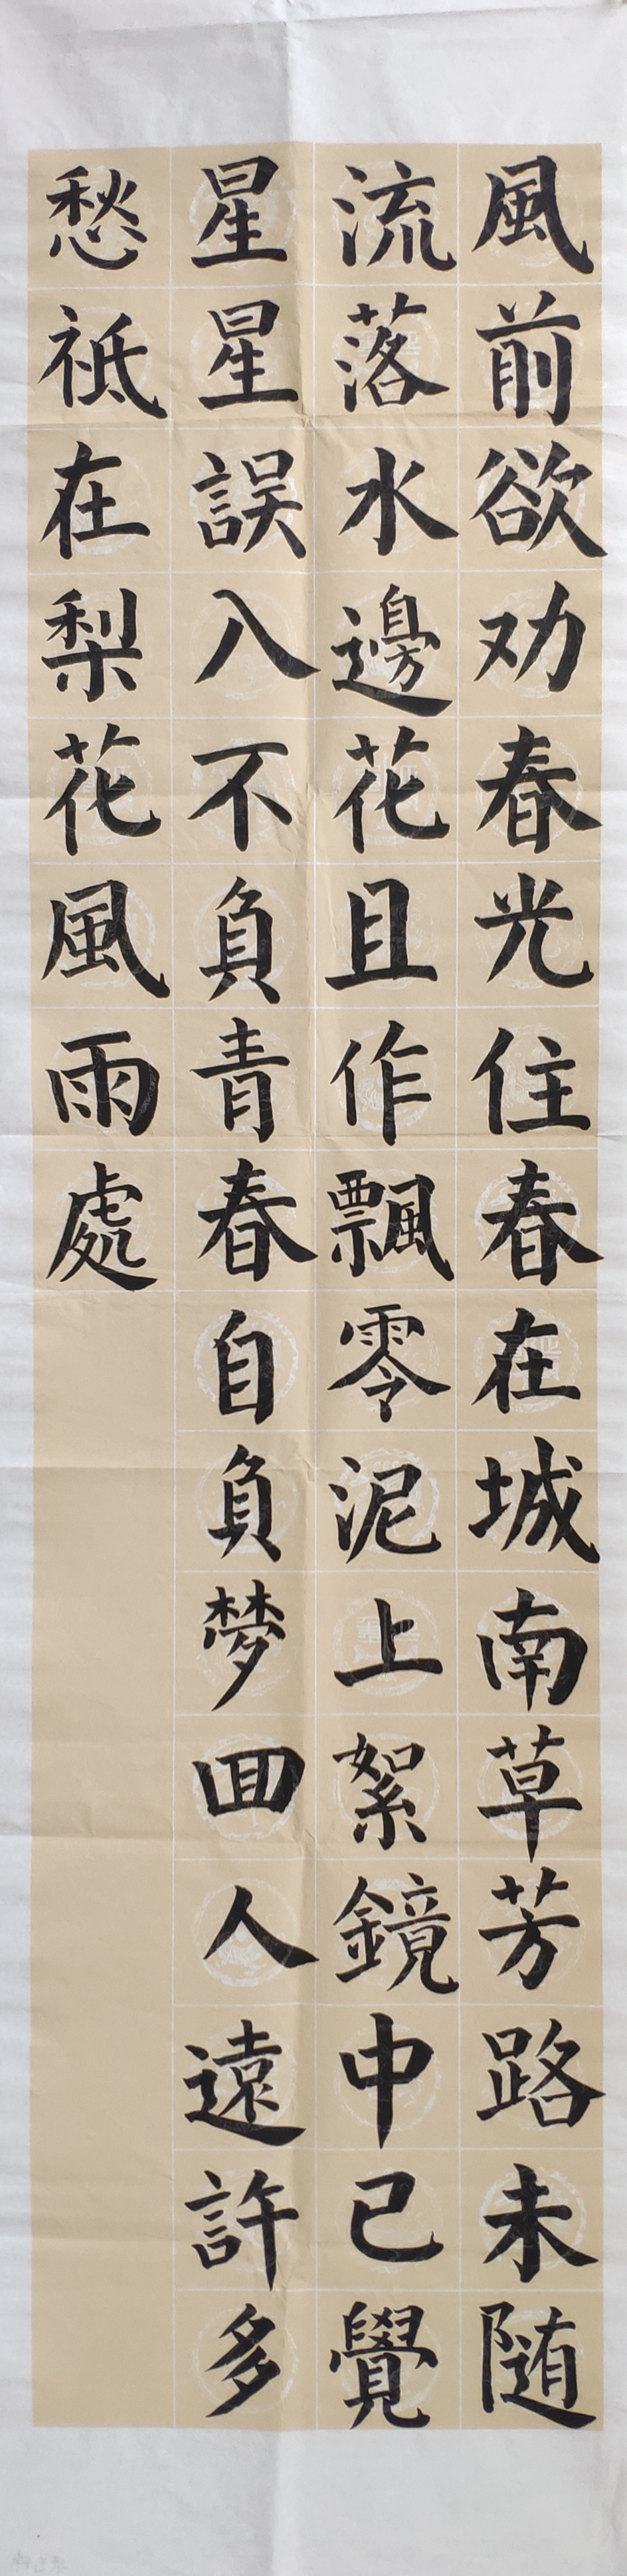 風前欲劝春光住春在城南草芳路未随
流落水邊花且作飄零泥上絮鏡中已覺
星星誤入不負青春自負夢回人遠許多
愁祗在梨花風雨處